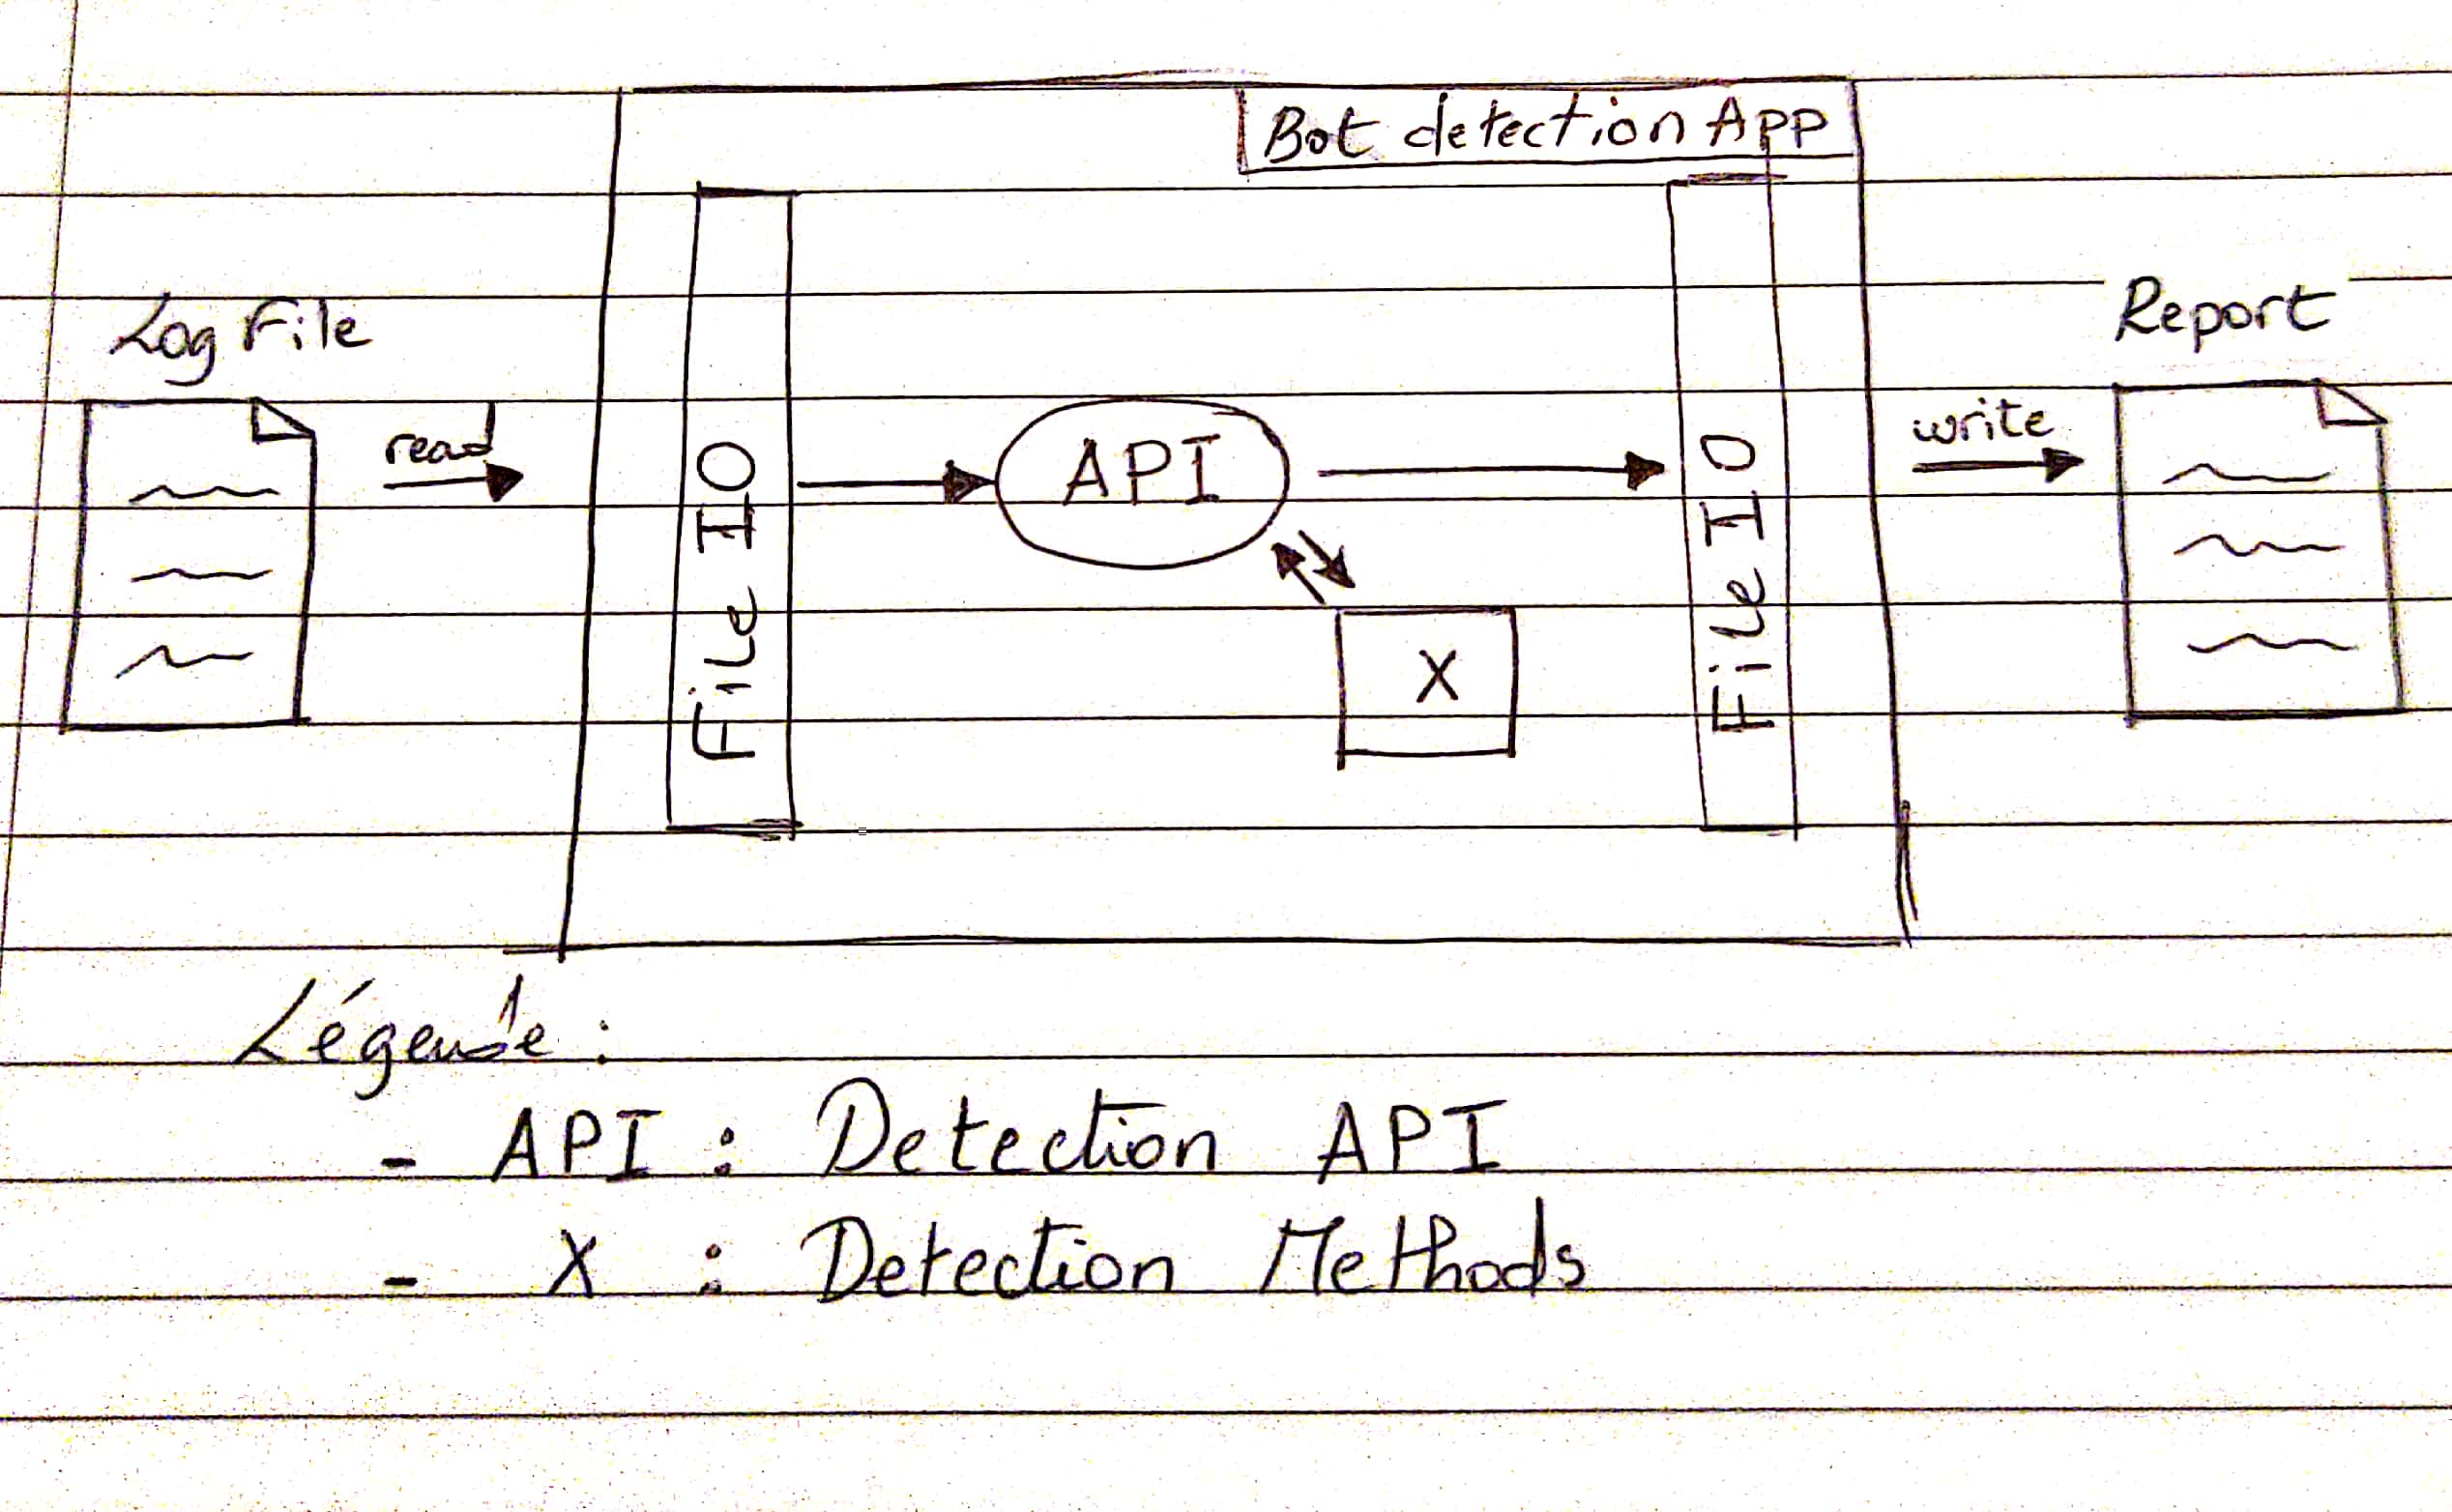 Bot detection App
Log File
read
File IO
API
X
File IO
write
Report
Légende :
- API : Detection API
- X : Detection Methods